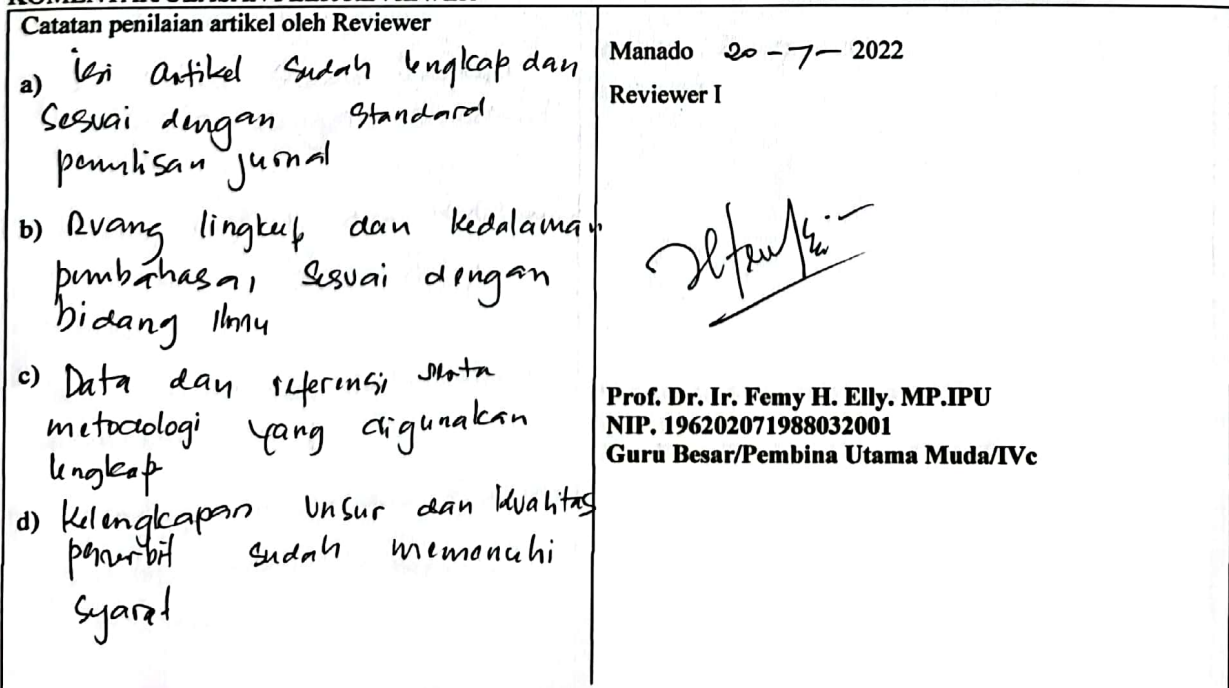 Catatan penilaian artikel oleh Reviewer
a) isi artikel sudah lengkap dan
sesuai dengan standard
penulisan jurnal
b) Ruang lingkup dan kedalaman
pembahasan sesuai dengan
bidang ilmu
c) Data dan referensi serta
metodologi yang digunakan
lengkap
d) Kelengkapan unsur dan kualitas
penerbit sudah memenuhi
syarat
Manado 20 - 7 - 2022
Reviewer I
Prof. Dr. Ir. Femy H. Elly. MP.IPU
NIP. 196202071988032001
Guru Besar/Pembina Utama Muda/IVc